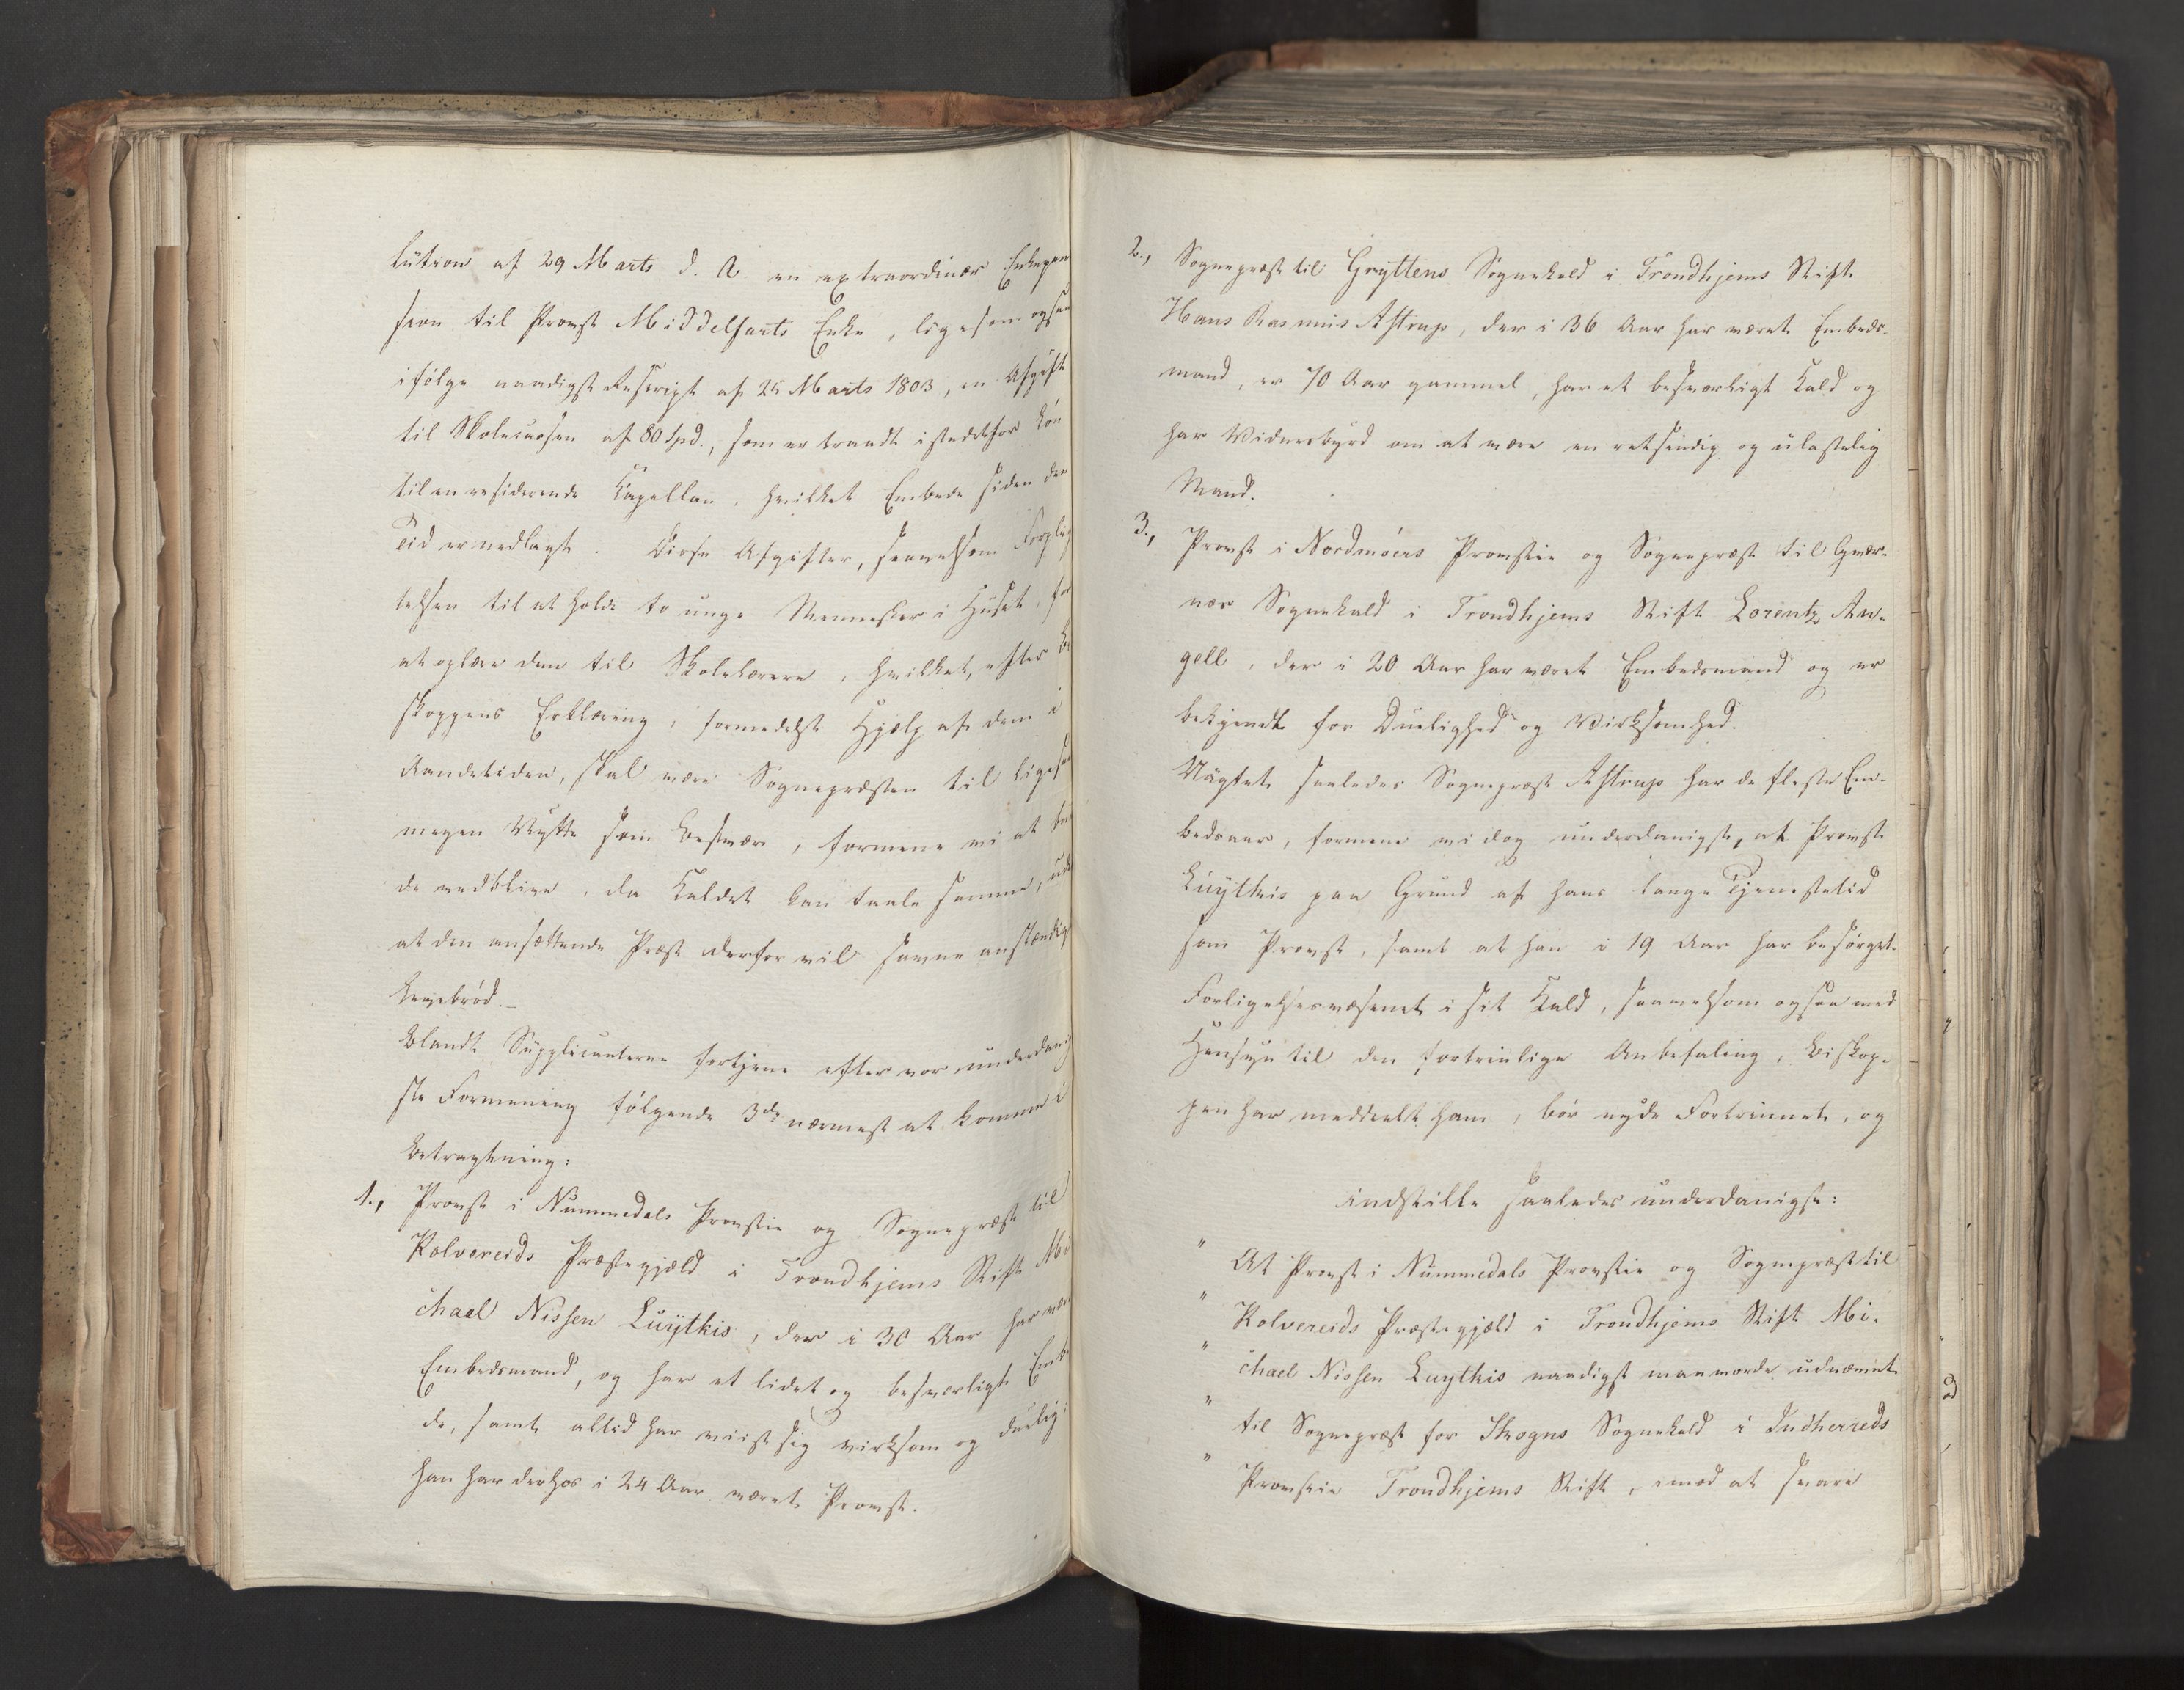 lution af 29 Marts d. A. en extraordinær Enkepen
sion til Provst Middelfarts Enke, ligesom ogsaa
ifølge naadigst Rescript af 25 Marts 1803, en Afgift
til Skolecassen af 80 Spd., som er traadt istedetfor Løn
til en residerende Kapellan, hvilket Embede siden den
Tid er nedlagt. Disse Afgifter, saavelsom Forplig
telsen til at holde to unge Mennesker i Huset, for
at oplære dem til Skolelærere, hvilket, efter Bi
skoppens Erklæring, formedelst Hjælp af dem i
Aandetiden, skal være Sognepræsten til ligesaa
megen Nytte som Besvær, formene vi at bur
de vedblive, da Kaldet kan taale samme, uden
at den ansættende Præst derfor vil savne anstændigt
Levebrød.-
Blandt Supplicanterne fortjene efter vor underdanig
ste Formening følgende 3de nærmest at komme i
Betragtning:
1., Provst i Nummedals Provstie og Sognepræst til
Kolvereids Præstegjæld i Trondhjems Stift Mi
chael Nissen Luytkis, der i 30 Aar har været
Embedsmand, og har et lidet og besværligt Embe
de, samt altid har viist sig virksom og duelig;
han har derhos i 24 Aar været Provst.
2., Sognepræst til Gryttens Sognekald i Trondhjems Stift
Hans Rasmus Astrup, der i 36 Aar har været Embeds-
mand, er 70 Aar gammel, har et besværligt Kald og
har Vidnesbyrd om at være en retsindig og ulastelig
Mand.
3., Provst i Nordmøers Provstie og Sognepræst til Qvær-
næs Sognekald i Trondhjems Stift Lorentz An-
gell, der i 20 Aar har været Embedsmand og er
bekjendt for Duelighed og Virksomhed.
Uagtet saaledes Sognepræst Astrup har de fleste Em-
bedsaar, formene vi dog underdanigst, at Provst
Luytkis paa Grund af hans lange Tjenestetid
som Provst, samt at han i 19 Aar har besørget
Forligelsesvæsenet i sit Kald, saavelsom ogsaa med
Hensyn til den fortrinlige Anbefaling, Biskop-
pen har meddeelt ham, bør nyde Fortrinnet, og
indstille saaledes underdanigst:
" At Provst i Nummedals Provstie og Sognepræst til
" Kolvereids Præstegjæld i Trondhjems Stift Mi-
" chael Nissen Luytkis naadigst maa vorde udnævnt
" til Sognepræst for Skogns Sognekald i Indherreds
" Provstie Trondhjems Stift, imod at svare